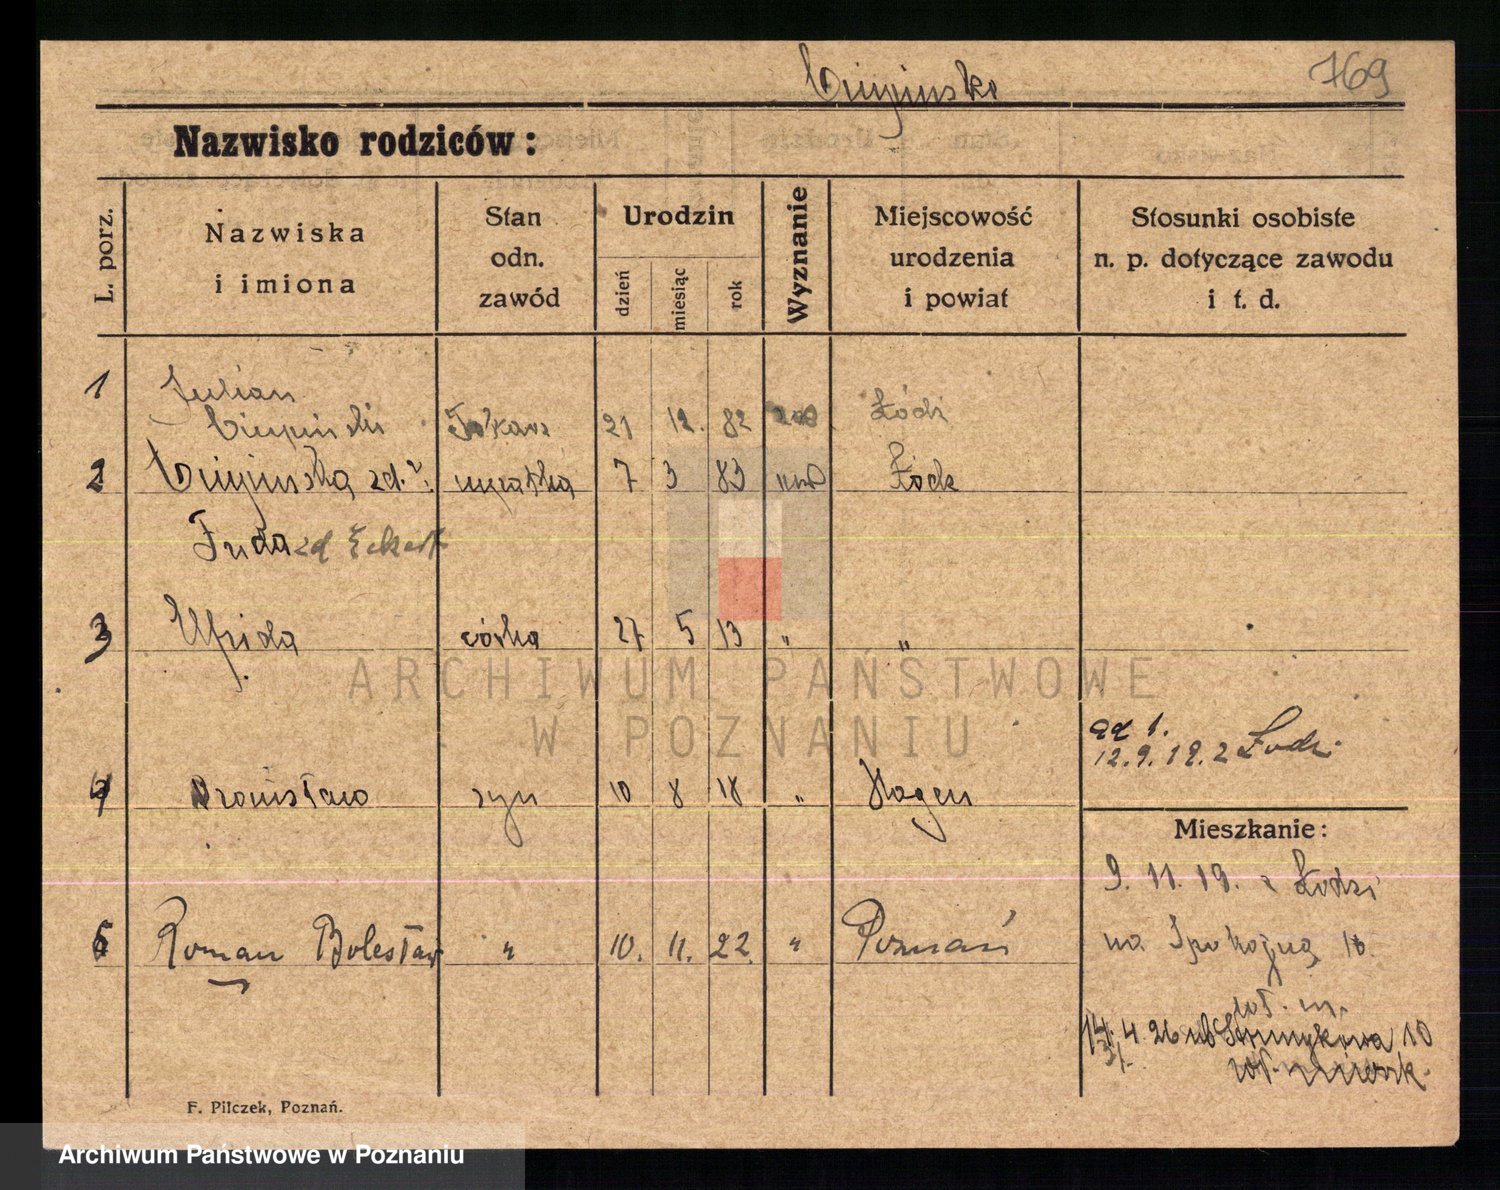 169
Nazwisko rodziców:
L. porz.
Nazwiska
i imiona
Stan
odn.
zawód
Urodzin
dzień
miesiąc
rok
Wyznanie
Miejscowość
urodzenia
i powiat
Stosunki osobiste
n. p. dotyczące zawodu
i t. d.
1 Julian
Tokarz 21 12. 82 Łódź
2 zd. mężatka 7 3 83 Łódź
Frida zd Eckert
3 córka 27 5 13 " "
ad 1.
12.9.19. z Łodzi
4 Bronisław syn 10 8 18 " Hagen
Mieszkanie:
9. 11. 19. z Łodzi
5 Roman Bolesław " 10. 11. 22. " Poznań
na Spokojną 10.
wł. m.
14. 4 26 Strumykowa 10
wł. mieszk.
F. Pilczek, Poznań.
ARCHIWUM PAŃSTWOWE
W POZNANIU
Archiwum Państwowe w Poznaniu